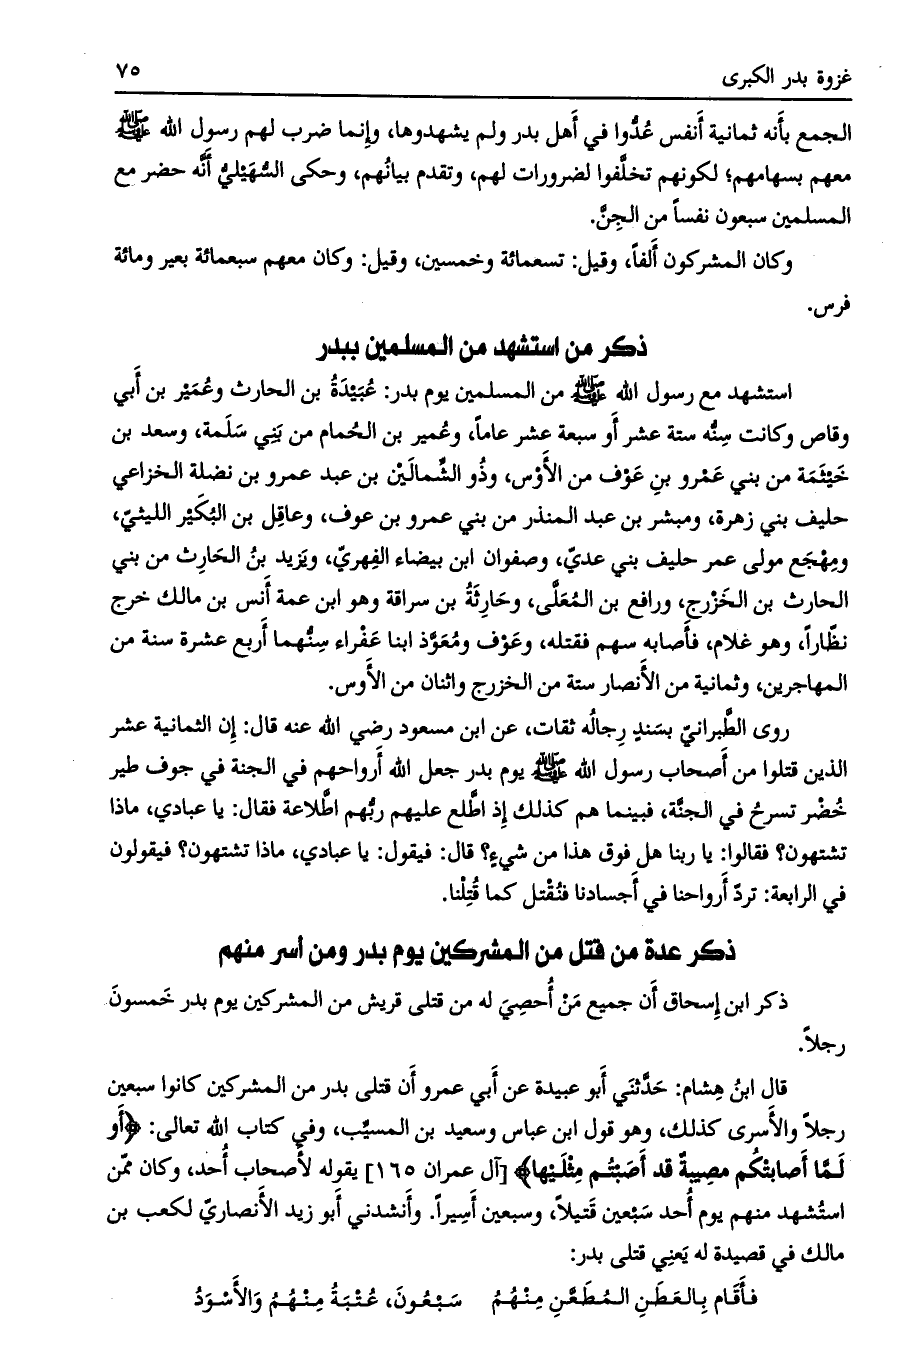 غزوة بدر الكبرى ٧٥
الجمع بأَنه ثمانية أَنفس عُدُّوا في أَهل بدر ولم يشهدوها، وإِنما ضرب لهم رسول الله ﷺ
معهم بسهامهم؛ لكونهم تخلَّفوا لضرورات لهم، وتقدم بيانُهم، وحكى السُّهَيْليُّ أَنَّه حضر مع
المسلمين سبعون نفساً من الجِنَّ.
وكان المشركون أَلفاً، وقيل: تسعمائة وخمسين، وقيل: وكان معهم سبعمائة بعير ومائة
فرس.
ذكر من استشهد من المسلمين ببدر
استشهد مع رسول الله ﷺ من المسلمين يوم بدر: عُبَيْدَةُ بن الحارث وعُمَيْر بن أَبي
وقاص وكانت سِنُّه ستة عشر أَو سبعة عشر عاماً، وعُمير بن الحُمام من بَنِي سَلَمة، وسعد بن
خَيْثَمَة من بني عَمْرو بنِ عَوْف من الأَوْس، وذُو الشِّمالَيْن بن عبد عمرو بن نضلة الخزاعي
حليف بني زهرة، ومبشر بن عبد المنذر من بني عمرو بن عوف، وعاقِل بن البُكَيْر الليثيّ،
ومِهْجَع مولى عمر حليف بني عديّ، وصفوان ابن بيضاء الفِهريّ، ويَزيد بنُ الحَارِث من بني
الحارث بن الخَزْرج، ورافع بن المُعَلَّى، وحَارِثَةُ بن سراقة وهو ابن عمة أَنس بن مالك خرج
نظَّاراً، وهو غلام، فأَصابه سهم فقتله، وعَوْف ومُعَوَّذ ابنا عَفْراء سِنُّهما أَربع عشرة سنة من
المهاجرين، وثمانية من الأَنصار ستة من الخزرج واثنان من الأَوس.
روى الطَّبرانيّ بسَندٍ رِجالُه ثقات، عن ابن مسعود رضي الله عنه قال: إِن الثمانية عشر
الذين قتلوا من أَصحاب رسول الله ﷺ يوم بدر جعل الله أَرواحهم في الجنة في جوف طير
خُضْر تسرحُ في الجنَّة، فبينما هم كذلك إِذ اطَّلع عليهم ربُّهم اطَّلاعة فقال: يا عبادي، ماذا
تشتهون؟ فقالوا: يا ربنا هل فوق هذا من شيءٍ؟ قال: فيقول: يا عبادي، ماذا تشتهون؟ فيقولون
في الرابعة: تردّ أَرواحنا في أَجسادنا فنُقْتل كما قُتِلْنا.
ذكر عدة من قتل من المشركين يوم بدر ومن أسر منهم
ذكر ابن إِسحاق أَن جميع مَنْ أُحصِيَ له من قتلى قريش من المشركين يوم بدر خَمسونَ
رجلاً.
قال ابنُ هِشام: حَدَّثَني أَبو عبيدة عن أَبي عمرو أَن قتلى بدر من المشركين كانوا سبعين
رجلاً والأَسرى كذلك، وهو قول ابن عباس وسعيد بن المسيَّب، وفي كتاب الله تعالى: ﴿أَو
لَمَّا أَصابتْكُم مصيبةٌ قد أَصَبْتُم مِثْلَيْها﴾ [آل عمران ١٦٥] يقوله لأَصحاب أُحد، وكان ممّن
استُشهد منهم يوم أُحد سَبْعين قَتيلاً، وسبعين أَسِيراً. وأَنشدني أَبو زيد الأَنصاريّ لكعب بن
مالك في قصيدة له يَعنِي قتلى بدر:
فأَقَام بِالعَطَنِ المُطعَّنِ مِنْهُمُ سَبْعُونَ، عُتْبَةُ مِنْهُمُ وَالأَسْوَدُ